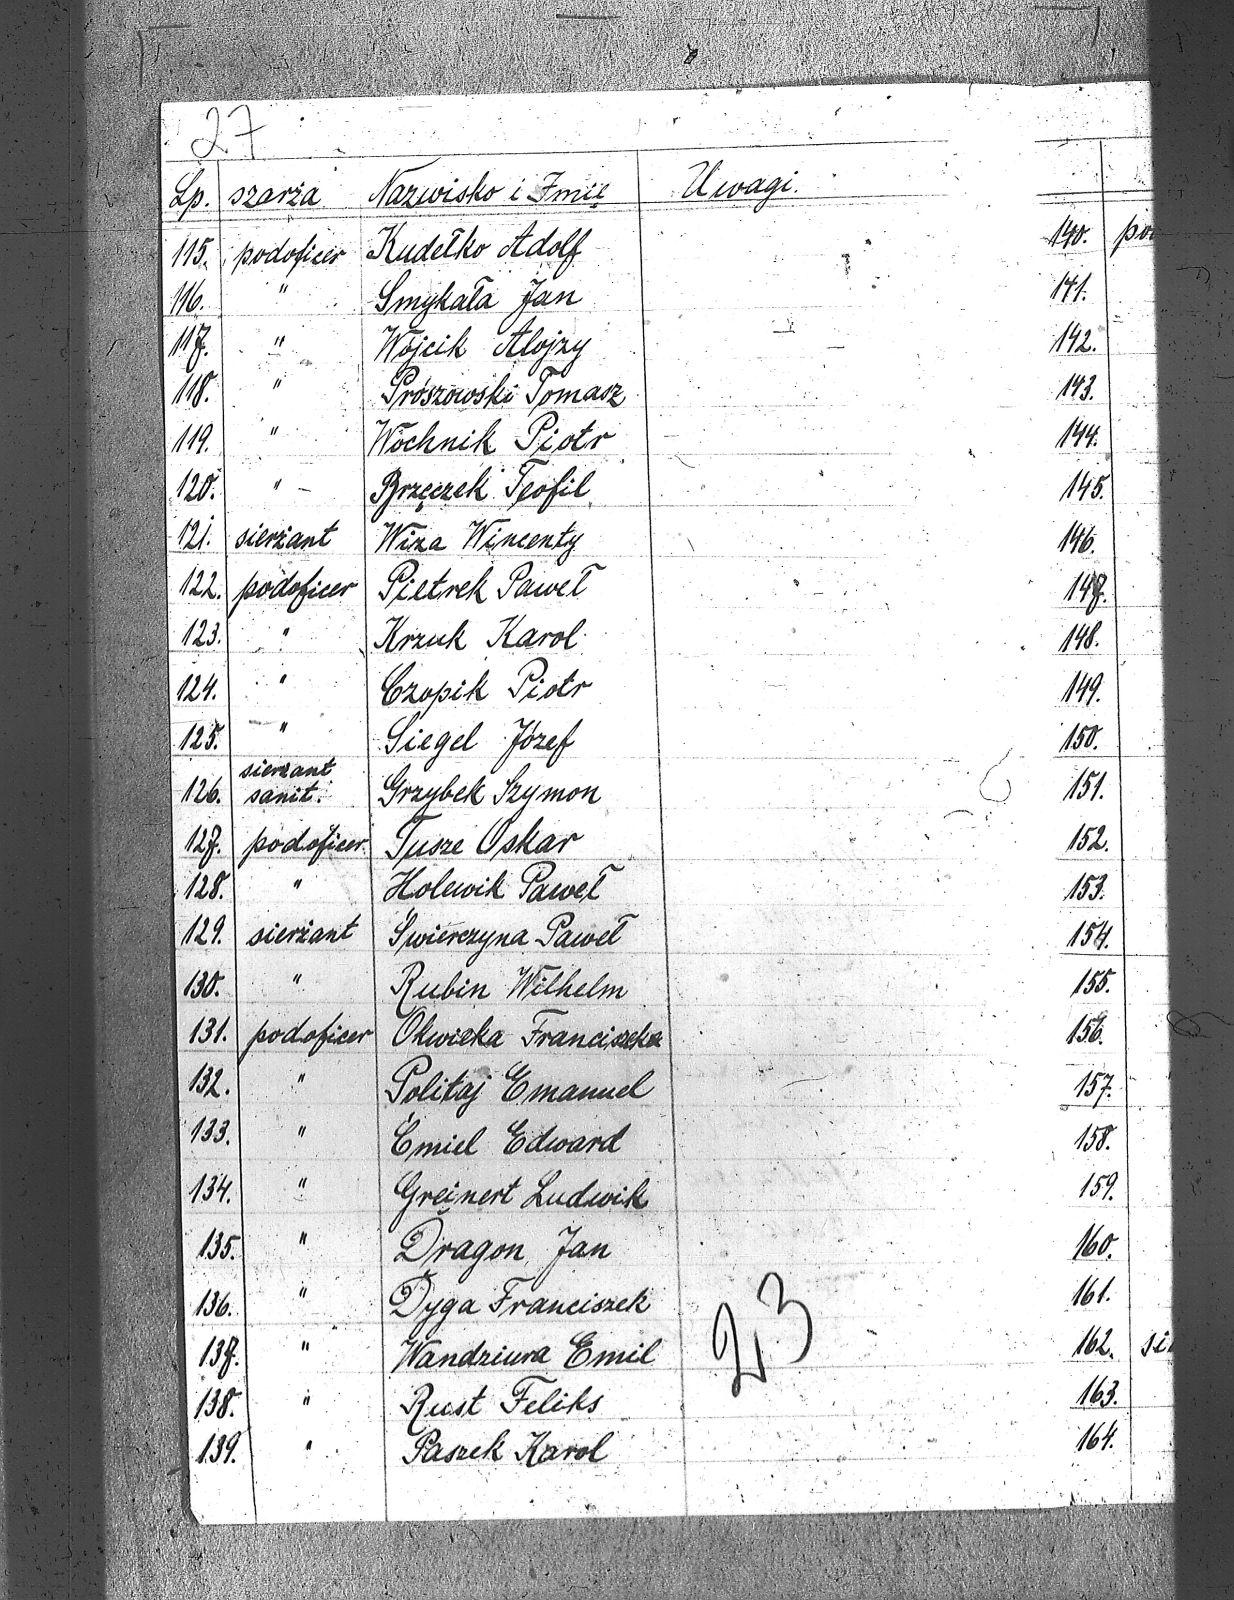 27
Lp. szarża Nazwisko i Imię Uwagi.
115. podoficer Kudełko Adolf
116. " Smykała Jan
117. " Wójcik Alojzy
118. " Prószowski Tomasz
119. " Wochnik Piotr
120. " Brzęczek Teofil
121. sierżant Wiza Wincenty
122. podoficer Pietrek Paweł
123. " Krzuk Karol
124. " Czopik Piotr
125. " Siegel Józef
126. sierżant sanit. Grzybek Szymon
127. podoficer Tusze Oskar
128. " Holewik Paweł
129. sierżant Świerczyna Paweł
130. " Rubin Wilhelm
131. podoficer Okwieka Franciszek
132. " Politaj Emanuel
133. " Ćmiel Edward
134. " Greinert Ludwik
135. " Dragon Jan
136. " Dyga Franciszek
137. " Wandziura Emil
138. " Rust Feliks
139. " Paszek Karol
23
140. po
141.
142.
143.
144.
145.
146.
147.
148.
149.
150.
151.
152.
153.
154.
155.
156.
157.
158.
159.
160.
161.
162. si
163.
164.